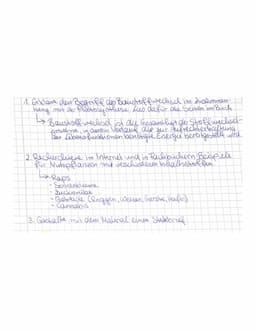 1. Erkläre den Begriff des Baustoffwechsel im Zusammen-
hang mit der Photosynthese. Lies dafür die Seiten im Buch
↳ Baustoffwechsel ist die Gesamtheit der Stoffwechsel-
prozesse, in deren Verlauf die zur Aufrechterhaltung
der Lebensfunktionen benötigte Energie bereitgestellt wird
2. Recherchiere im Internet und in Fachbüchern Beispiele
für Nutzpflanzen mit verschiedenen Inhaltsstoffen.
↳ - Raps
- Sonnenblume
- Zuckerrübe
- Getreide (Roggen, Weizen, Gerste, Hafer)
- Cannabis
3. Gestalte mit dem Material einen Steckbrief